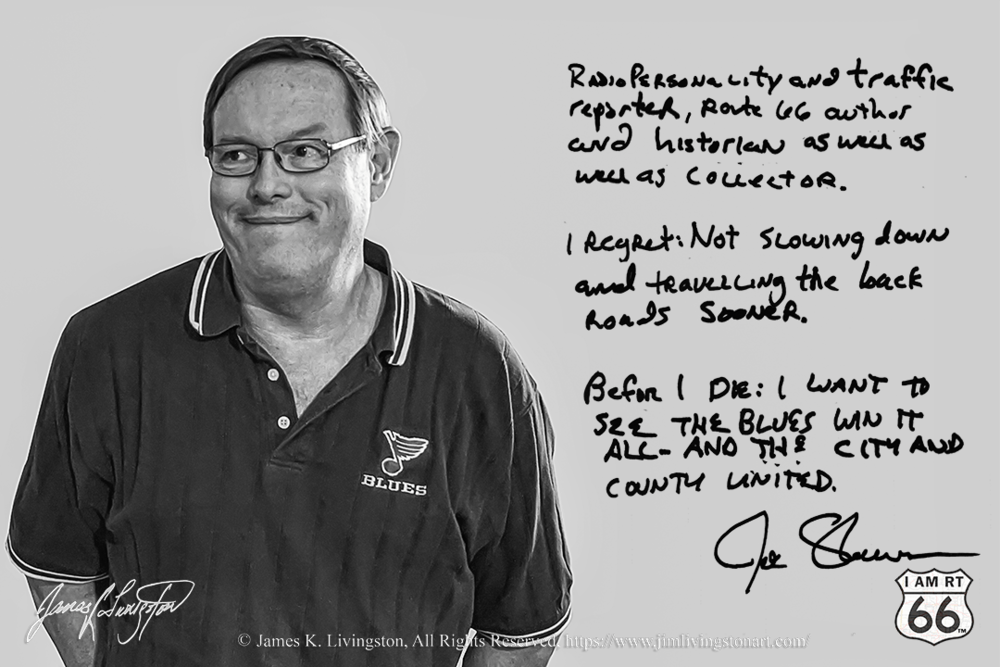 RadioPersonality and traffic
reporter, Route 66 author
and historian as well as
well as Collector.
I Regret: Not slowing down
and travelling the back
Roads Sooner.
Befor I Die: I WANT TO
SEE THE BLUES WIN IT
ALL- AND THE CITY AND
COUNTY UNITED.
Joe
BLUES
I AM RT
66
TM
James K Livingston
© James K. Livingston, All Rights Reserved, https://www.jimlivingstonart.com/